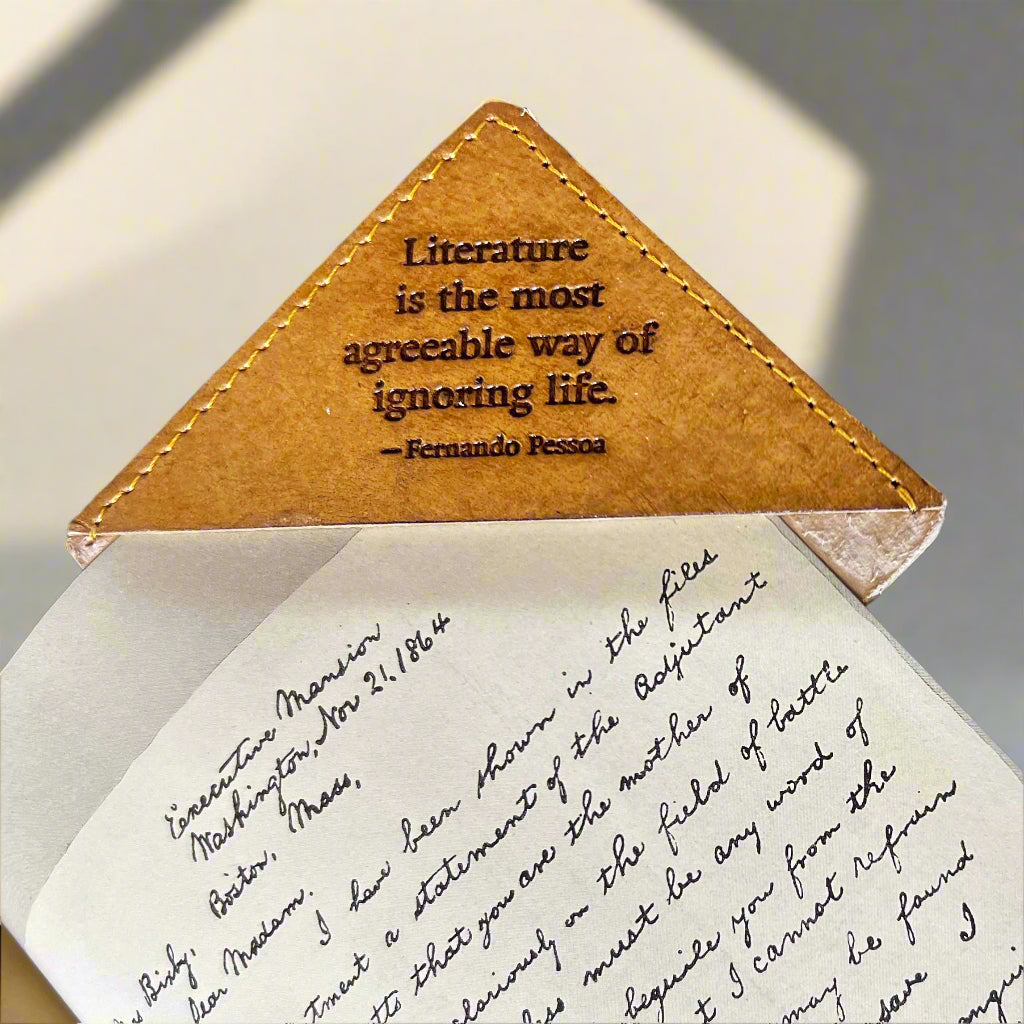 Literature
is the most
agreeable way of
ignoring life.
—Fernando Pessoa
Executive Mansion
Washington, Nov 21, 1864
Mass,
Boston,
Bixby,
Dear Madam.
I have been shown in the files
a statement of the Adjutant
that you are the mother of
gloriously on the field of battle
must be any word of
beguile you from the
I cannot refrain
may be found
save I